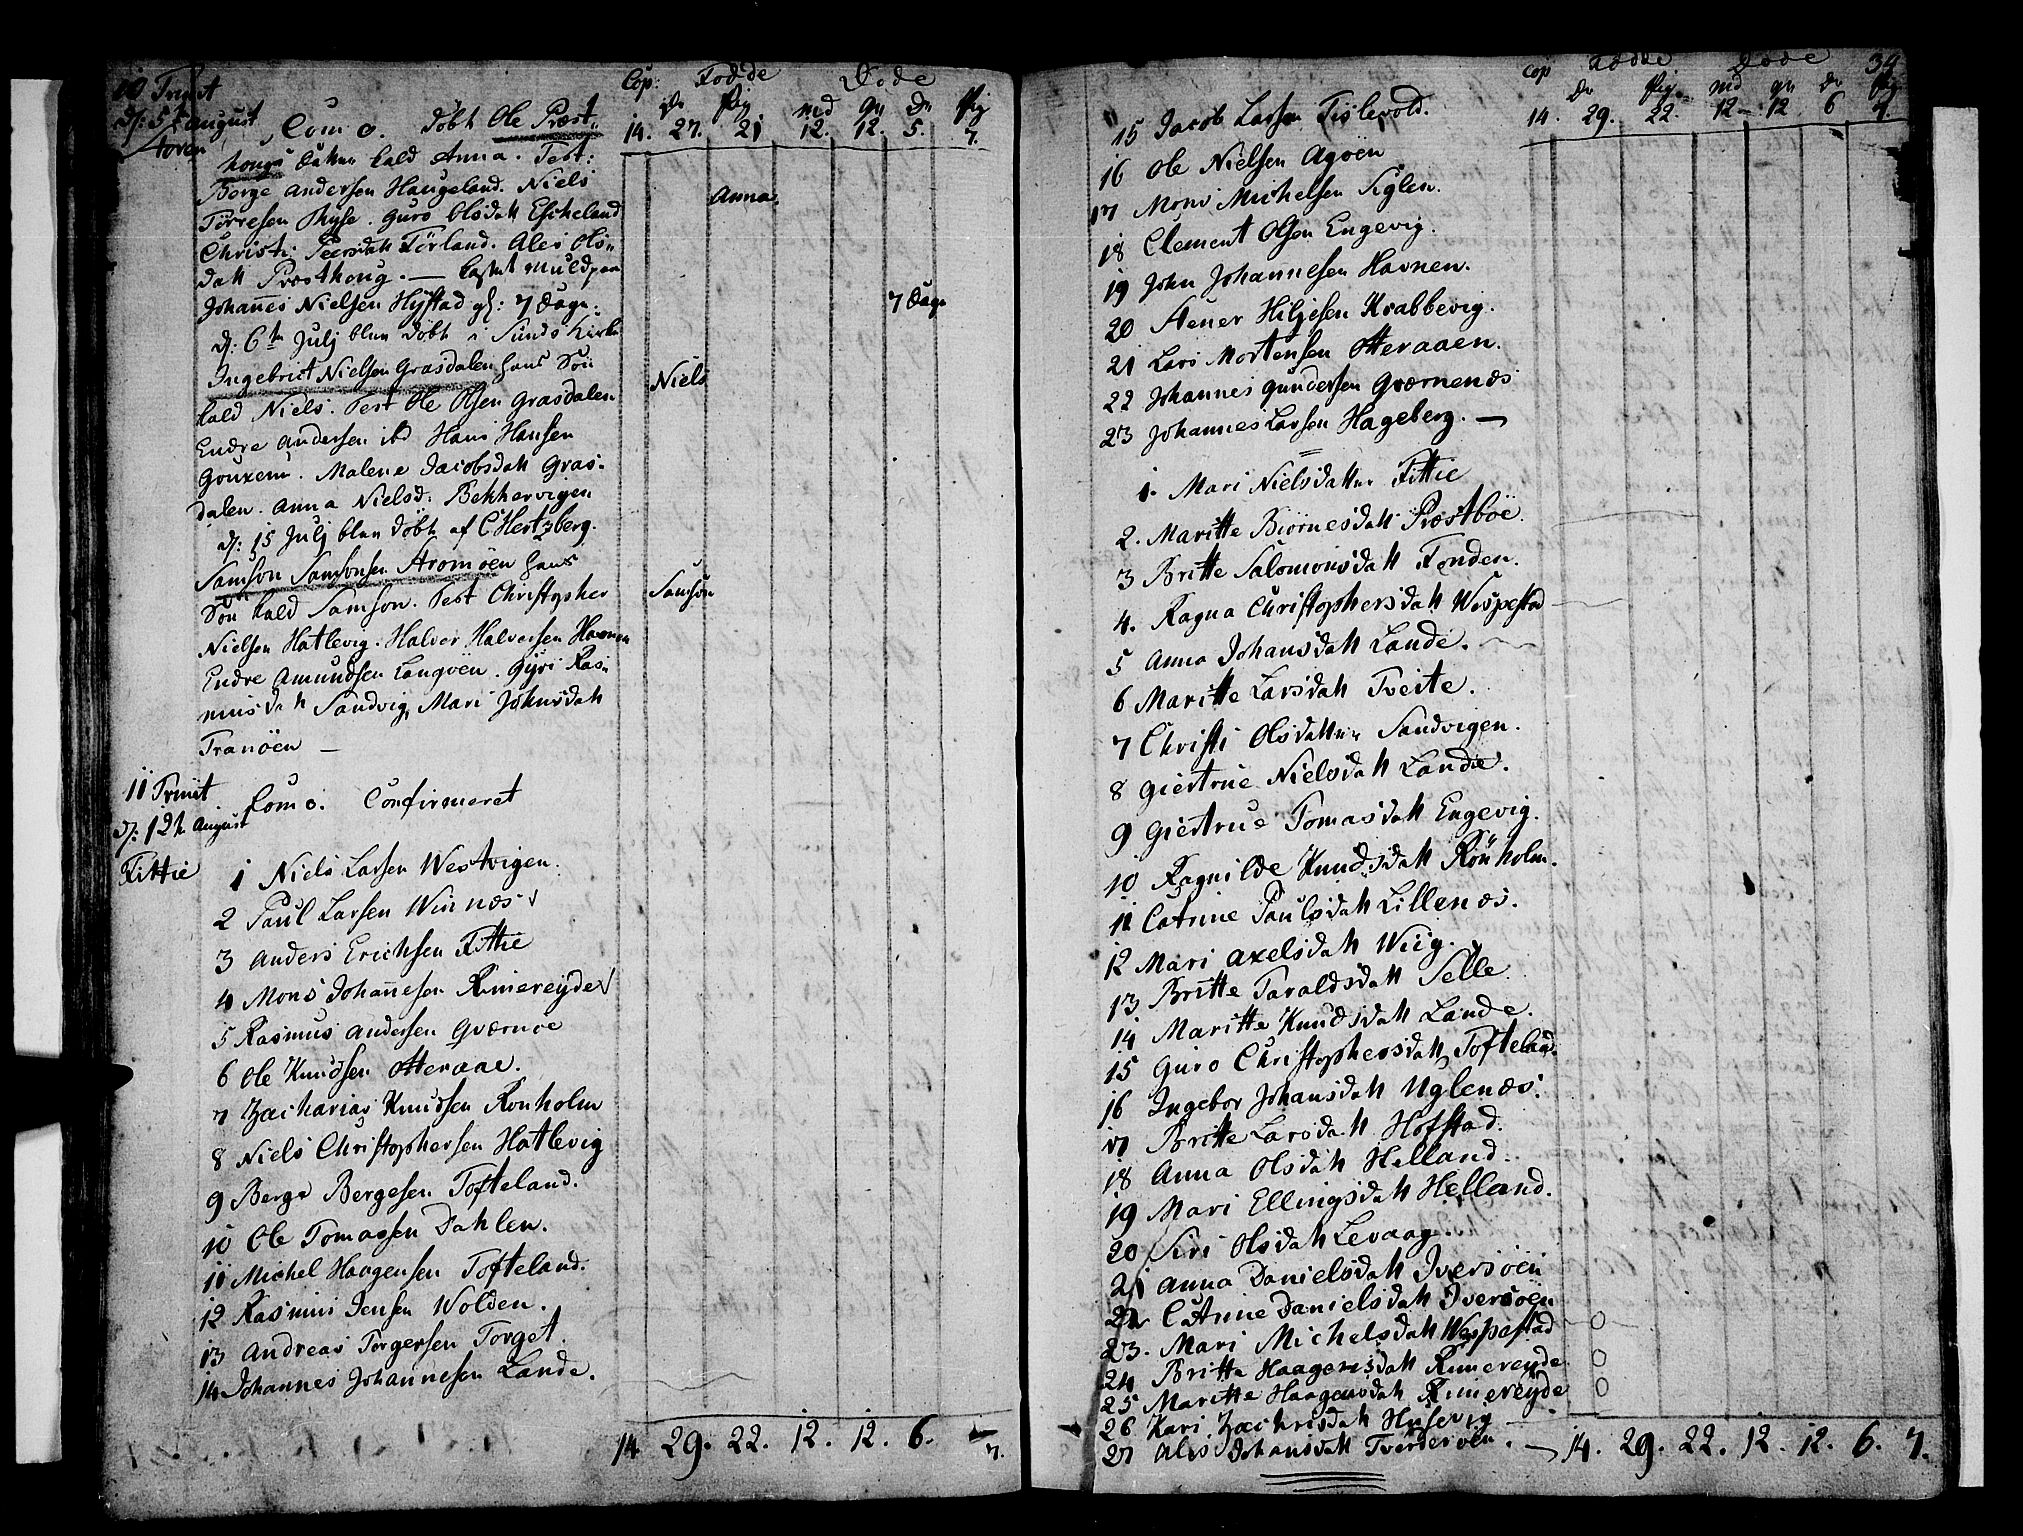 10 Trinit
d: 5t August
Cop. Fødde Døde
Dr Pig md qv Dr Pig
14. 27. 21 12. 12. 5. 7.
Com 0. døbt Ole Præst-
houg datter kald Anna. Test:
Borge Andersen Haugeland. Niels
Anna.
Torresen Thyse. Guro Olsdatt Escheland
Christi Peersdatt Førland. Ales Ols-
datt Præsthoug. — kastet muld paa
Johannes Nielsen Hystad gl: 7 Dage.
7 Dage
d: 6te Julj blev døbt i Sunds Kirke
Ingebrict Nielsen Grasdalen hans Søn
Niels
kald Niels. Test Ole Olsen Grasdalen
Endre Andersen ibd Hans Hansen
Malene Jacobsdatt Gras-
dalen. Anna Nielsd. Bekkervigen
d: 15 Julj blev døbt af C Hertzberg.
Samson Samsonsen Aromøen hans
Søn kald Samson. Test Christopher
Samson
Nielsen Hatlevig. Halvor Halvorsen Havnen
Endre Amundsen Langøen. Gyri Ras-
musdatt Sandvig, Mari Johnsdatt
Tranöen —
11 Trinit
d: 12t August
Fittie
Com 0. Confirmeret
1 Niels Larsen Westvigen.
2 Paul Larsen Winnæs
3 Anders Erichsen Fittie
4 Mons Johannesen Rimereyde
5 Rasmus Andersen Gværnøe
6 Ole Knudsen Otteraae.
7 Zacharias Knudsen Rønholm
8 Niels Christophersen Hatlevig
9 Berge Bergesen Tofteland.
10 Ole Tomassen Dahlen.
11 Michel Haagensen Tofteland.
12 Rasmus Jensen Wolden.
13 Andreas Torgersen Torget.
14 Johannes Johannesen Lande.
14 29. 22. 12. 12. 6. 7.
34
Cop Fødde Døde
Dr Pig md qv Dr Pig
14. 29. 22. 12 — 12 6 7.
15 Jacob Larsen Fislevold.
16 Ole Nielsen Agöen
17 Mons Michelsen Siglen.
18 Clement Olsen Engevig.
19 John Johannesen Havnen.
20 Stener Hiljesen Krabbevig.
21 Lars Mortensen Otteraaen.
22 Johannes Gundersen Gværnenæs
23 Johannes Larsen Hageberg. —
1. Mari Nielsdatter Fittie
2. Maritte Biørnesdatt Præstbøe.
3 Britte Salomonsdatt Fonden.
4. Ragna Christophersdatt Wespestad
5 Anna Johansdatt Lande.
6 Maritte Larsdatt Tveite.
7 Christi Olsdatter Sandvigen.
8 Giertrue Nielsdatt Lande.
9 Giertrue Tomasdatt Engevig.
10 Ragnilde Knudsdatt Rönholm.
11 Catrine Paulsdatt Lillenæs.
12 Mari Axelsdatt Wiig.
13 Britte Taraldsdatt Selle.
14 Maritte Knudsdatt Lande.
15 Guro Christophersdatt Tofteland.
16 Ingebor Johansdatt Uglenæs.
17 Britte Larsdatt Hofstad.
18 Anna Olsdatt Helland.
19 Mari Ellingsdatt Helland.
20 Siri Olsdatt Levaag.
21 Anna Danielsdatt Iversöen
22 Catrine Danielsdatt Iversöen
23. Mari Michelsdatt Wespestad
24 Britte Haagensdatt Rimereyde
25 Maritte Haagensdatt Rimereyde
26 Kari Zachrisdatt Husevig —
27 Ales Johansdatt Tverderöen. — 14. 29. 22. 12. 12. 6. 7.